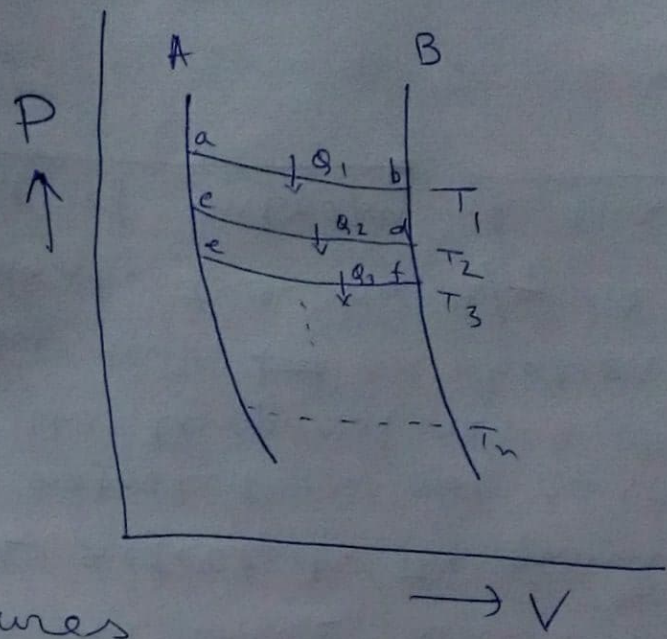 A B
P
a Q1 b T1
c Q2 d T2
e Q3 f T3
Tn
V
ures